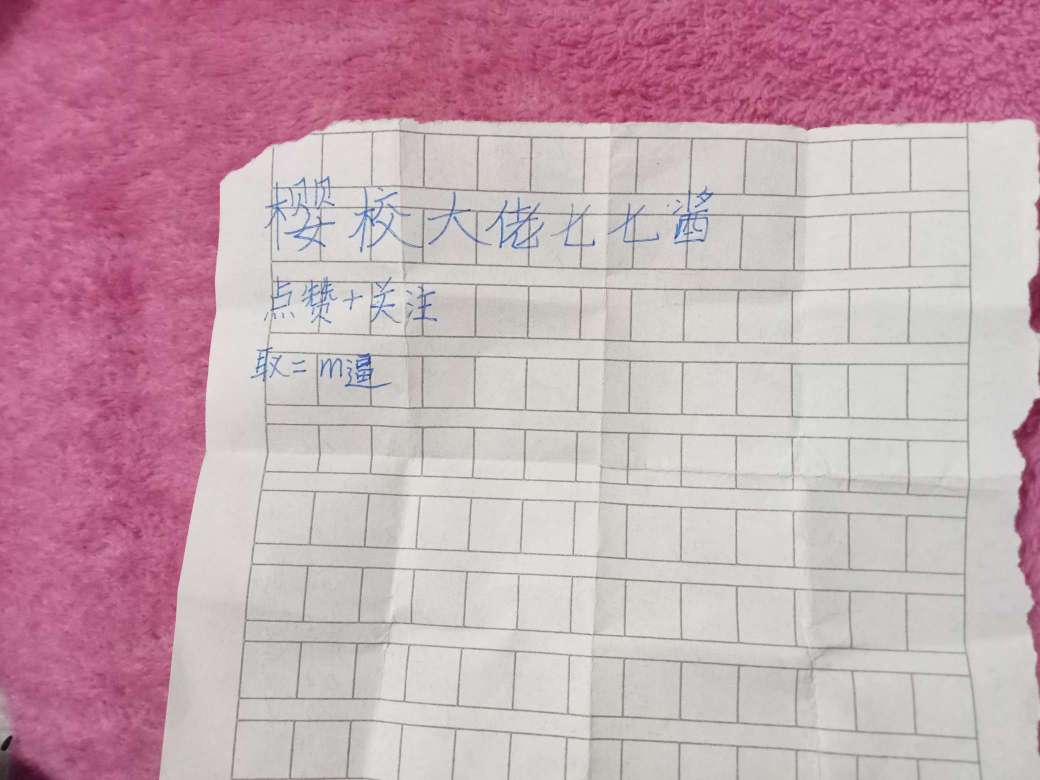 樱校大佬七七酱
点赞+关注
取=m逼